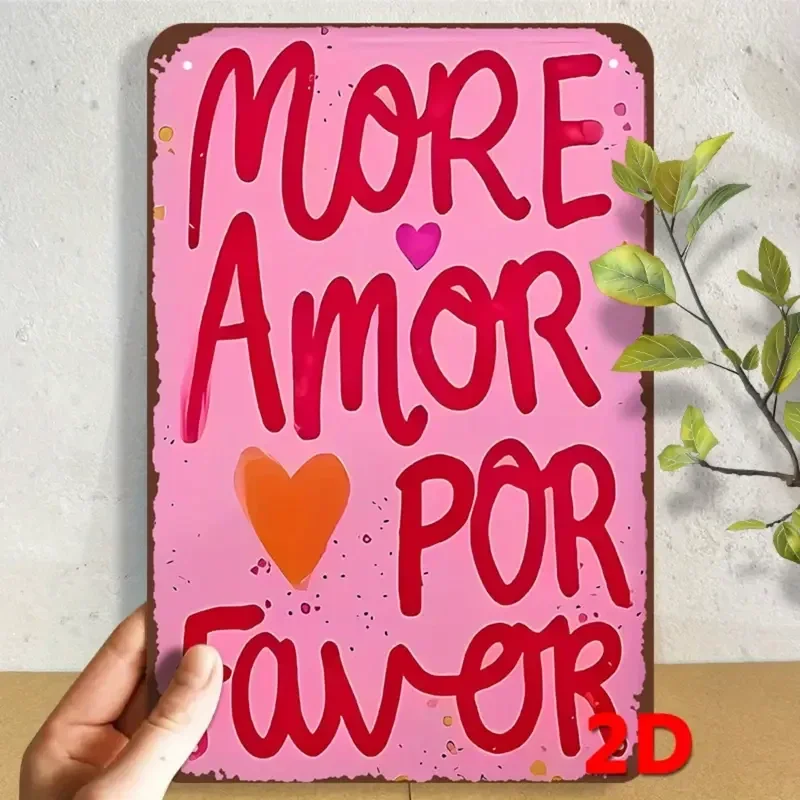 MORE
AMOR
POR
Favor
2D